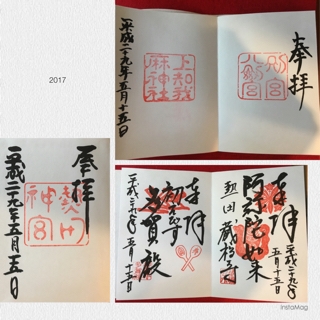 2017
奉拝
別宮
八剣宮
上知我
麻神社
平成二十九年五月十五日
奉拝
熱田
神宮
平成二九年五月十五日
奉拝
阿弥陀如来
熱田 蔵福寺
平成二九年五月十五日
奉拝
多賀殿
平成二九年五月十五日
InstaMag